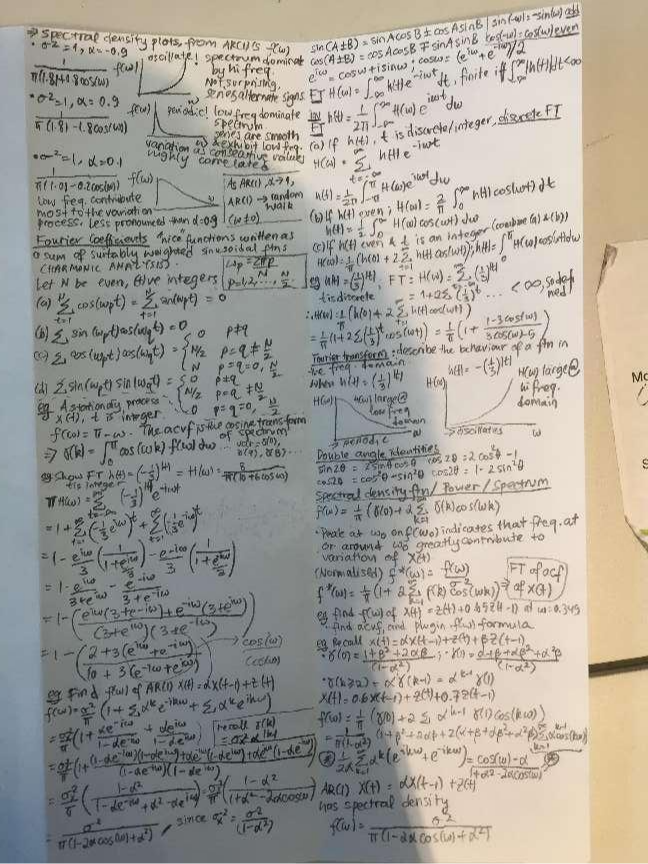 ⇒ Spectral density plots, from AR(1)'s f(ω)
· σ²=1, α=-0.9
1/π(1.81+1.8cos(ω)) f(ω) oscillate! spectrum dominated by hi freq.
Not surprising, series alternate signs.
· σ²=1, α=0.9
1/π(1.81-1.8cos(ω)) f(ω) periodic! low freq dominate spectrum
series are smooth & exhibit low freq.
variation as consecutive values highly correlated
· σ²=1, α=0.1
1/π(1.01-0.2cos(ω)) f(ω)
As AR(1), α→1,
AR(1) → random walk
(ω≠0)
low freq. contribute
most to the variation
process. Less pronounced than α=0.9
Fourier Coefficients "nice" functions written as
a sum of suitably weighted sinusoidal ftns
(HARMONIC ANALYSIS).
ωp = 2πp/N
p=1,2,..., N/2
Let N be even, +ive integers
(a) Σ cos(ωpt) = Σ sin(ωpt) = 0
(b) Σ sin(ωpt)cos(ωqt) = 0
(c) Σ cos(ωpt)cos(ωqt) = { 0 p≠q
N/2 p=q≠N/2
N p=q=0, N/2
(d) Σ sin(ωpt)sin(ωqt) = { 0 p≠q
N/2 p=q≠N/2
0 p=q=0, N/2
eg A stationary process
X(t), t is integer.
f(ω) = π-ω. The acvf is the cosine transform of spectrum
⇒ γ(k) = ∫₀^π cos(ωk) f(ω)dω
eg Show FT h(t)=(-1/3)^|t| = H(ω) = 8/π(10+6cosω)
t is integer
πH(ω) = Σ (-1/3)^|t| e^-iωt
= 1 + Σ(-1/3 e^iω)^t + Σ(-1/3 e^-iω)^t
= 1 - e^iω/3 (1/(1+e^iω/3)) - e^-iω/3 (1/(1+e^-iω/3))
= 1 - e^iω/(3+e^iω) - e^-iω/(3+e^-iω)
= 1 - (e^iω(3+e^-iω)+e^-iω(3+e^iω))/((3+e^iω)(3+e^-iω))
= 1 - (2+3(e^iω+e^-iω))/(10+3(e^-iω+e^iω)) → cos(ω)
cos(ω)
eg Find f(ω) of AR(1) X(t)=αX(t-1)+Z(t)
f(ω) = σ²/π (1 + Σ α^k e^-ikω + Σ α^k e^ikω)
= σ²/π (1 + αe^-iω/(1-αe^-iω) + αe^iω/(1-αe^iω)) recall γ(k)
= σ²/π (1-α²)/(1-αe^-iω+α²-αe^iω) = σ²/π (1-α²)/(1+α²-2αcosω)
= σ²/π(1-2αcos(ω)+α²), since σx² = σ²/(1-α²)
sin(A±B) = sinAcosB ± cosAsinB | sin(-ω) = -sin(ω) odd
cos(A±B) = cosAcosB ∓ sinAsinB cos(-ω) = cos(ω) even
e^iω = cosω+isinω; cosω = (e^iω+e^-iω)/2
FT H(ω) = ∫ h(t)e^-iωt dt, finite if ∫|h(t)|dt<∞
h(t) = 1/2π ∫ H(ω)e^iωt dω
(a) If h(t), t is discrete/integer, discrete FT
H(ω) = Σ h(t)e^-iωt
h(t) = 1/2π ∫ H(ω)e^iωt dω
(b) If h(t) even; H(ω) = 2/π ∫₀^∞ h(t)cos(ωt)dt
h(t) = ∫₀^∞ H(ω)cos(ωt)dω
(c) If h(t) even & t is an integer (combine (a) & (b))
H(ω) = 1/π (h(0)+2Σ h(t)cos(ωt)); h(t) = ∫₀^π H(ω)cos(ωt)dω
eg h(t)=(1/3)^|t|, FT: H(ω) = Σ(1/3)^|t|
t is discrete = 1+2Σ(1/3)^t ... < ∞, so defined
∴ H(ω) = 1/π (h(0)+2Σ h(t)cos(ωt))
= 1/π (1+2Σ(1/3)^t cos(ωt)) = 1/π (1 + (1-3cos(ω))/(3cos(ω)-5))
Fourier transform: describe the behaviour of a ftn in
the freq. domain. h(t) = -(1/3)^|t|
When h(t)=(1/3)^|t|
H(ω) H(ω) large @ low freq domain
⇒ periodic
H(ω) H(ω) large @ hi freq. domain
⇒ oscillates
Double angle identities
sin2θ = 2sinθcosθ cos2θ = 2cos²θ-1
cos2θ = cos²θ-sin²θ cos2θ = 1-2sin²θ
Spectral density ftn / Power / Spectrum
f(ω) = 1/π (γ(0)+2Σ γ(k)cos(ωk))
·Peak at ω₀ on f(ω₀) indicates that freq. at
or around ω₀ greatly contribute to
variation of X(t)
(Normalised) f*(ω) = f(ω)/σ²
FT of acf of X(t)
f*(ω) = 1/π (1+2Σ ρ(k)cos(ωk))
eg find f(ω) of X(t)=Z(t)+0.45Z(t-1) at ω=0.349
find acvf, and plugin f(ω) formula
eg Recall X(t)=αX(t-1)+Z(t)+βZ(t-1)
·γ(0) = (1+β²+2αβ)/(1-α²); γ(1) = (α+β+αβ²+α²β)/(1-α²)
·γ(k≥2) = αγ(k-1) = α^k-1 γ(1)
X(t)=0.6X(t-1)+Z(t)+0.7Z(t-1)
f(ω) = 1/π (γ(0)+2Σ α^k-1 γ(1)cos(kω))
= 1/π(1-α²) (1+β²+2αβ+2(α+β+αβ²+α²β)Σ α^k-1 cos(kω))
1/2α Σ α^k(e^ikω+e^-ikω) = (cos(ω)-α)/(1+α²-2αcos(ω))
AR(1) X(t) = αX(t-1)+Z(t)
has spectral density
f(ω) = σ²/π(1-2αcos(ω)+α²)